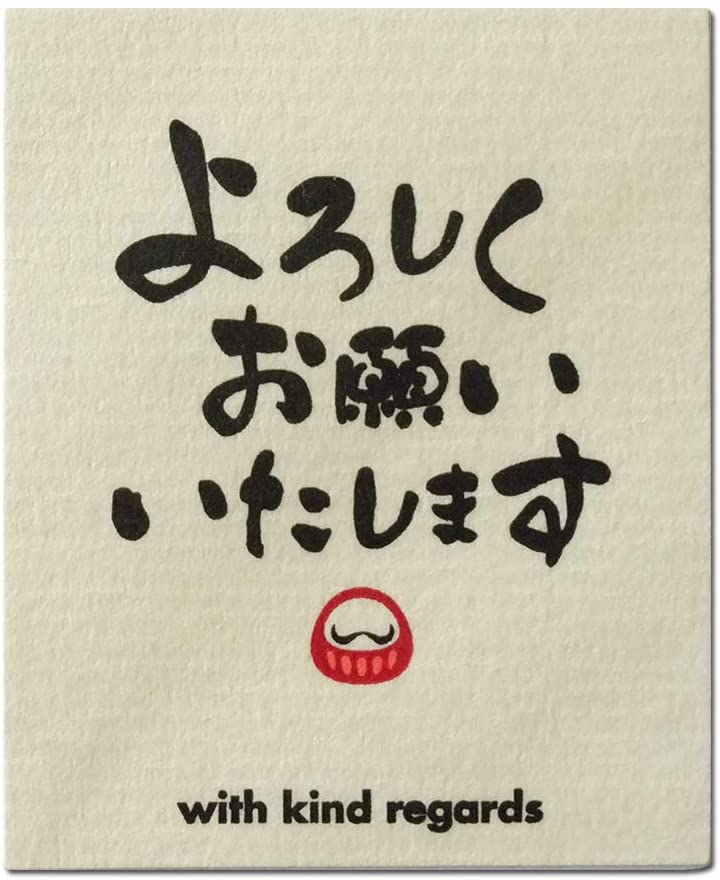 よろしく
お願い
いたします
with kind regards